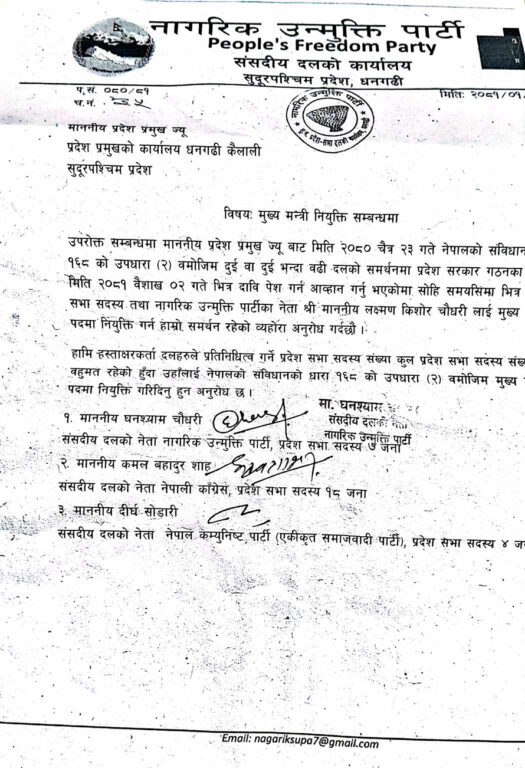 नागरिक उन्मुक्ति पार्टी
People's Freedom Party
संसदीय दलको कार्यालय
सुदूरपश्चिम प्रदेश, धनगढी
प.सं. ०८०/८१
च.नं. ३५
मितिः २०८१/०१
माननीय प्रदेश प्रमुख ज्यू
प्रदेश प्रमुखको कार्यालय धनगढी कैलाली
सुदूरपश्चिम प्रदेश
विषयः मुख्य मन्त्री नियुक्ति सम्बन्धमा
उपरोक्त सम्बन्धमा माननीय प्रदेश प्रमुख ज्यू बाट मिति २०८० चैत्र २३ गते नेपालको संविधान
१६८ को उपधारा (२) वमोजिम दुई वा दुई भन्दा वढी दलको समर्थनमा प्रदेश सरकार गठनका
मिति २०८१ वैशाख ०२ गते भित्र दावि पेश गर्न आव्हान गर्नु भएकोमा सोहि समयसिमा भित्र
सभा सदस्य तथा नागरिक उन्मुक्ति पार्टीका नेता श्री माननीय लक्ष्मण किशोर चौधरी लाई मुख्य
पदमा नियुक्ति गर्न हाम्रो समर्थन रहेको व्यहोरा अनुरोध गर्दछौ ।
हामि हस्ताक्षरकर्ता दलहरुले प्रतिनिधित्व गर्ने प्रदेश सभा सदस्य संख्या कुल प्रदेश सभा सदस्य संख
बहुमत रहेको हुँदा उहाँलाई नेपालको संविधानको धारा १६८ को उपधारा (२) वमोजिम मुख्य
पदमा नियुक्ति गरिदिनु हुन अनुरोध छ ।
१. माननीय घनश्याम चौधरी
मा. घनश्याम
संसदीय दलको नेता
नागरिक उन्मुक्ति पार्टी
संसदीय दलको नेता नागरिक उन्मुक्ति पार्टी, प्रदेश सभा सदस्य ७ जना
२. माननीय कमल बहादुर शाह
संसदीय दलको नेता नेपाली काँग्रेस, प्रदेश सभा सदस्य १८ जना
३. माननीय दीर्घ सोडारी
संसदीय दलको नेता नेपाल कम्युनिष्ट पार्टी (एकीकृत समाजवादी पार्टी), प्रदेश सभा सदस्य ४ जन
Email: nagariksupa7@gmail.com